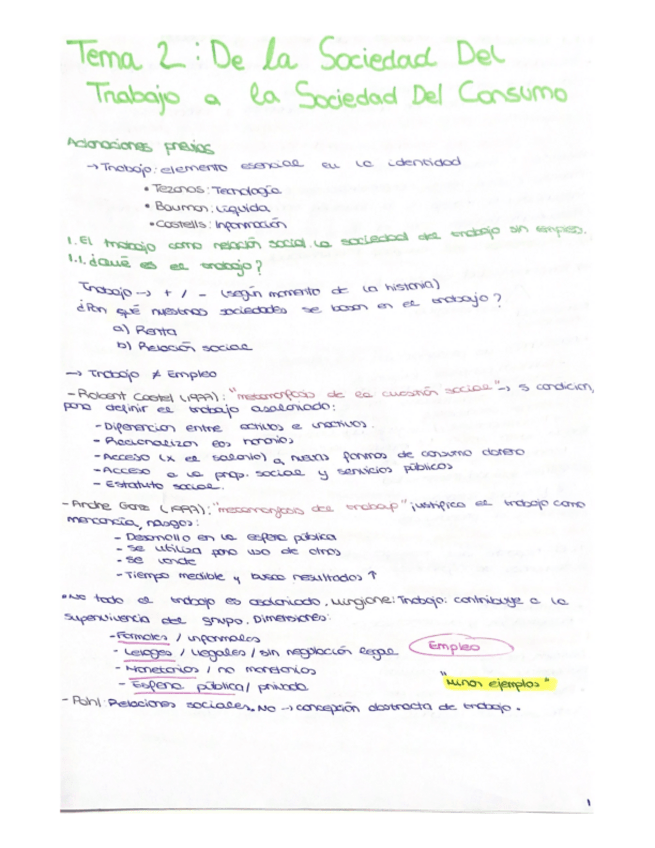 Tema 2: De la Sociedad Del
Trabajo a la Sociedad Del Consumo
Aclaraciones previas
→ Trabajo: elemento esencial en la identidad
• Tezanos: Tecnología
• Bauman: Líquida
• Castells: Información
1. El trabajo como relación social. La sociedad del trabajo sin empleo.
1.1. ¿Qué es el trabajo?
Trabajo → + / - (según momento de la historia)
¿Por qué nuestras sociedades se basan en el trabajo?
a) Renta
b) Relación social
→ Trabajo ≠ Empleo
- Robert Castel (1997): "metamorfosis de la cuestión social" → 5 condicion,
para definir el trabajo asalariado:
- Diferencian entre activos e inactivos.
- Racionalizan los horarios
- Acceso (x el salario) a nuevas formas de consumo obrero
- Acceso a la prop. social y servicios públicos
- Estatuto social.
- Andre Gorz (1997): "metamorfosis del trabajo" justifica el trabajo como
mercancía, rasgos:
- Desarrollo en la esfera pública
- Se utiliza para uso de otros
- Se vende
- Tiempo medible y busca resultados ↑
• No todo el trabajo es asalariado. Mingione: Trabajo: contribuye a la
supervivencia del grupo. Dimensiones:
- Formales / informales
- Legales / ilegales / sin regulación legal
Empleo
- Monetarios / no monetarios
- Esfera pública / privada
"Mirar ejemplos"
- Pahl: Relaciones sociales. No → concepción abstracta de trabajo.
1